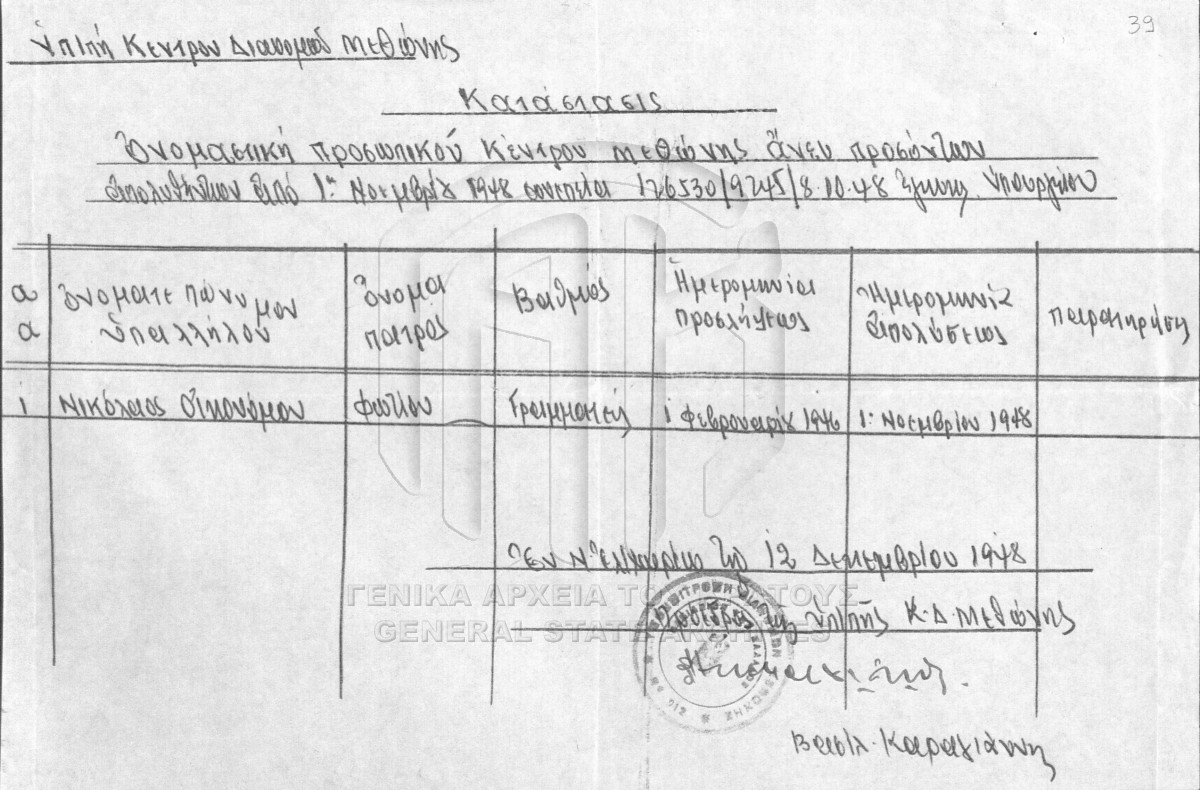 39
Υπ)πή Κέντρου Διανομού Μεθώνης
Κατάστασις
Ὀνομαστική προσωπικού Κέντρου Μεθώνης ἄνευ προσόντων
ἀπολυθέντων ἀπό 1ης Νοεμβρίου 1948 συνεπεία 126530/9245/8.10.48 Υπουργείου
α α
Ὀνοματεπώνυμον Ὑπαλλήλου
Ὄνομα πατρος
Βαθμός
Ἡμερομηνία προσλήψεως
Ἡμερομηνία ἀπολύσεως
παρατηρήσεις
1 Νικόλαος Οἰκονόμου Φωτίου Γραμματεύς 1 Φεβρουαρίου 1946 1: Νοεμβρίου 1948
Ἐν Ν. τῇ 12 Δεκεμβρίου 1948
ΓΕΝΙΚΑ ΑΡΧΕΙΑ ΤΟΥ ΚΡΑΤΟΥΣ
Πρόεδρος της Υπ)πής Κ.Δ. Μεθώνης
GENERAL STATE ARCHIVES
Βασίλ. Καραγιάννη